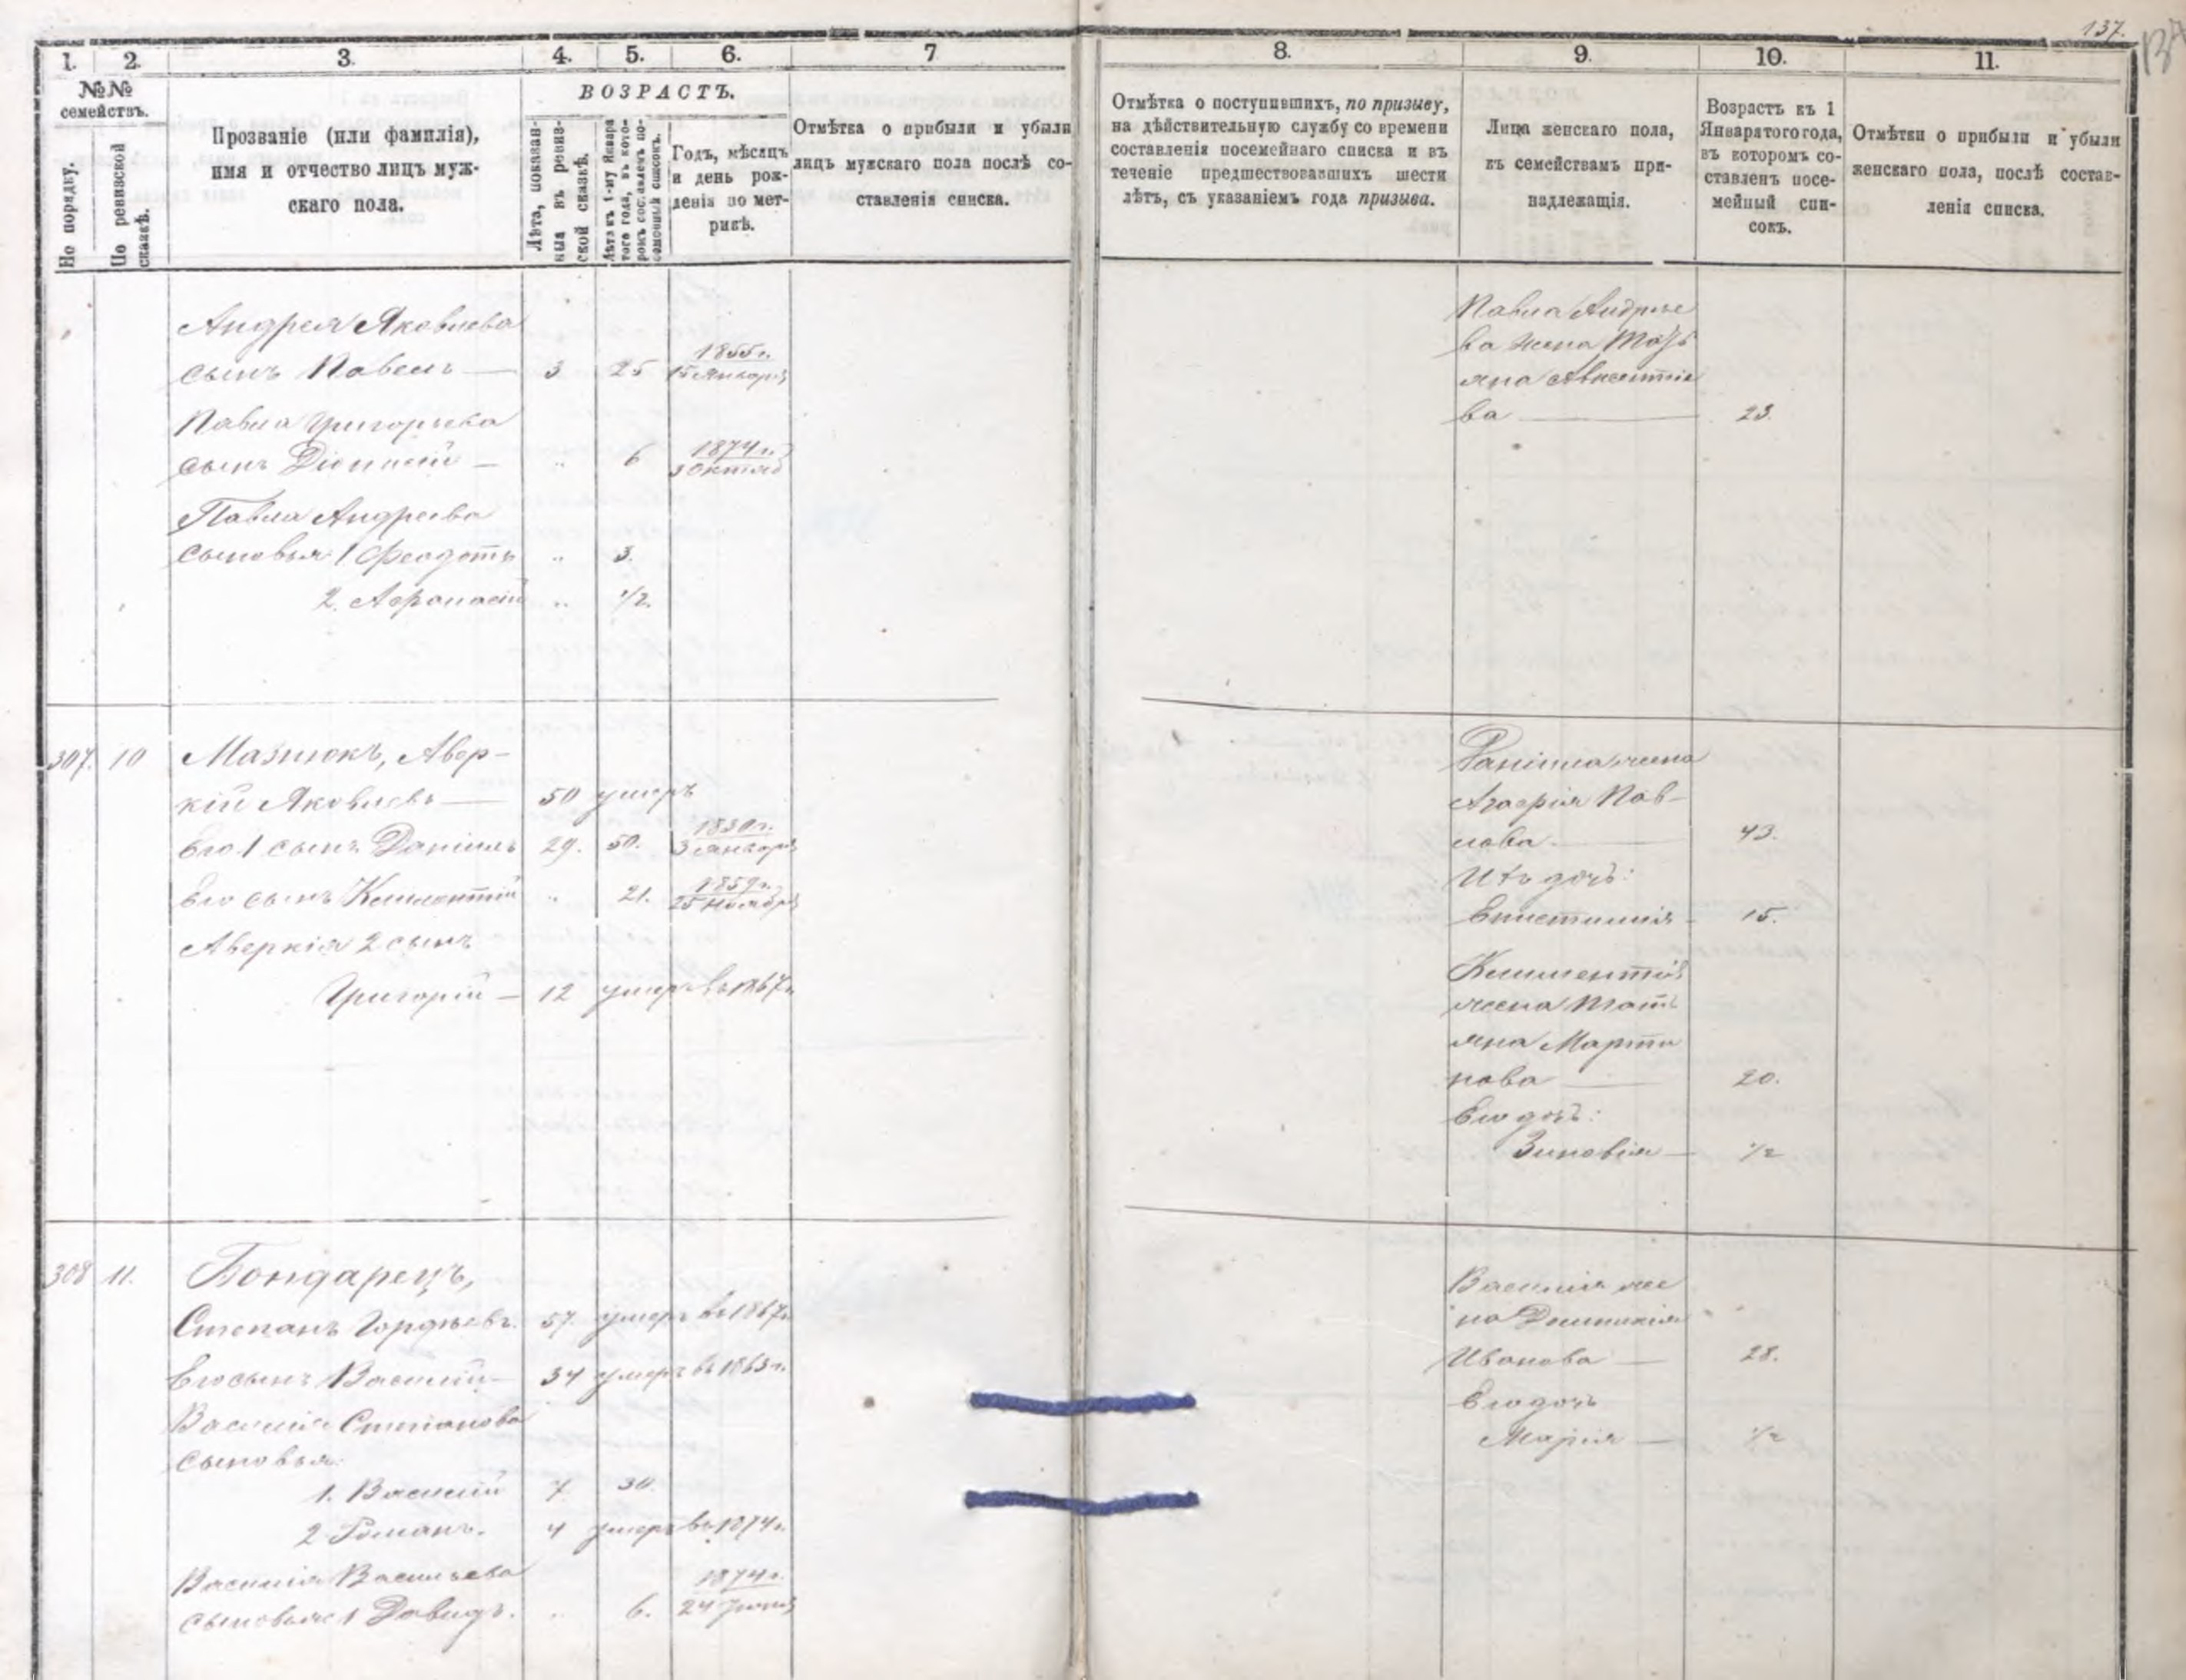 137.
137
1.
2.
3.
4.
5.
6.
7
8.
9.
10.
11.
№№
семействъ.
По порядку.
По ревизской
сказкѣ.
Прозваніе (или фамилія),
имя и отчество лицъ муж-
скаго пола.
ВОЗРАСТЪ.
Лѣта, показан-
ныя въ ревиз-
ской сказкѣ.
Лѣта къ 1-му Января
того года, въ кото-
ромъ составленъ по-
семейный списокъ.
Годъ, мѣсяцъ
и день рож-
денія по мет-
рикѣ.
Отмѣтка о прибыли и убыли
лицъ мужскаго пола послѣ со-
ставленія списка.
Отмѣтка о поступившихъ, по призыву,
на дѣйствительную службу со времени
составленія посемейнаго списка и въ
теченіе предшествовавшихъ шести
лѣтъ, съ указаніемъ года призыва.
Лица женскаго пола,
къ семействамъ при-
надлежащія.
Возрастъ къ 1
Января того года,
въ которомъ со-
ставленъ посе-
мейный спи-
сокъ.
Отмѣтки о прибыли и убыли
женскаго пола, послѣ состав-
ленія списка.
Андрея Яковлева
сынъ Павелъ — 3 25 1855 г. 15 января
Павла Григорьева
сынъ Діонисій — „ 6 1874 г. 3 октяб
Павла Андреева
сыновья 1 Феодотъ „ 3.
2. Афанасій „ 1/2.
Павла Андрее
ва жена Татъ
яна Авксентіе
ва — 23.
307. 10 Мазнюкъ, Авер-
кій Яковлевъ — 50 умеръ
Его 1 сынъ Даніилъ 29. 50. 1830 г. 3 января
Его сынъ Климентій „ 21. 1859 г. 25 ноября
Аверкія 2 сынъ
Григорій — 12 умеръ въ 1867 г.
Даніила жена
Агафія Пав-
лова — 43.
Ихъ дочь:
Епистимія — 15.
Климентія
жена Тать
яна Марти
нова — 20.
Его дочь:
Зиновія — 1/2
308 11. Бондарецъ,
Степанъ Гордѣевъ. 57. умеръ въ 1867 г.
Его сынъ Василій — 34 умеръ въ 1863 г.
Василія Степанова
сыновья:
1. Василій 7 30.
2 Романъ. 4 умеръ въ 1874 г.
Василія Васильева
сыновья: 1 Давидъ. „ 6. 1874 г. 24 Іюня
Василія же
на Домникія
Иванова — 28.
Его дочь
Марія — 1/2